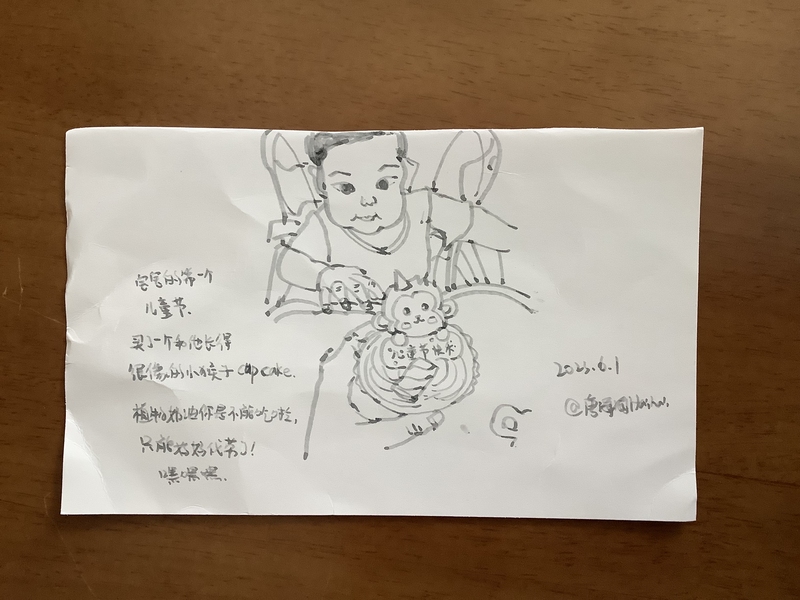 宝宝的第一个
儿童节.
买了一个和他长得
很像的小猴子 cupcake.
植物奶油你是不能吃啦,
只能妈妈代劳了!
嘿嘿嘿.
儿童节快乐
2023.6.1
@唐